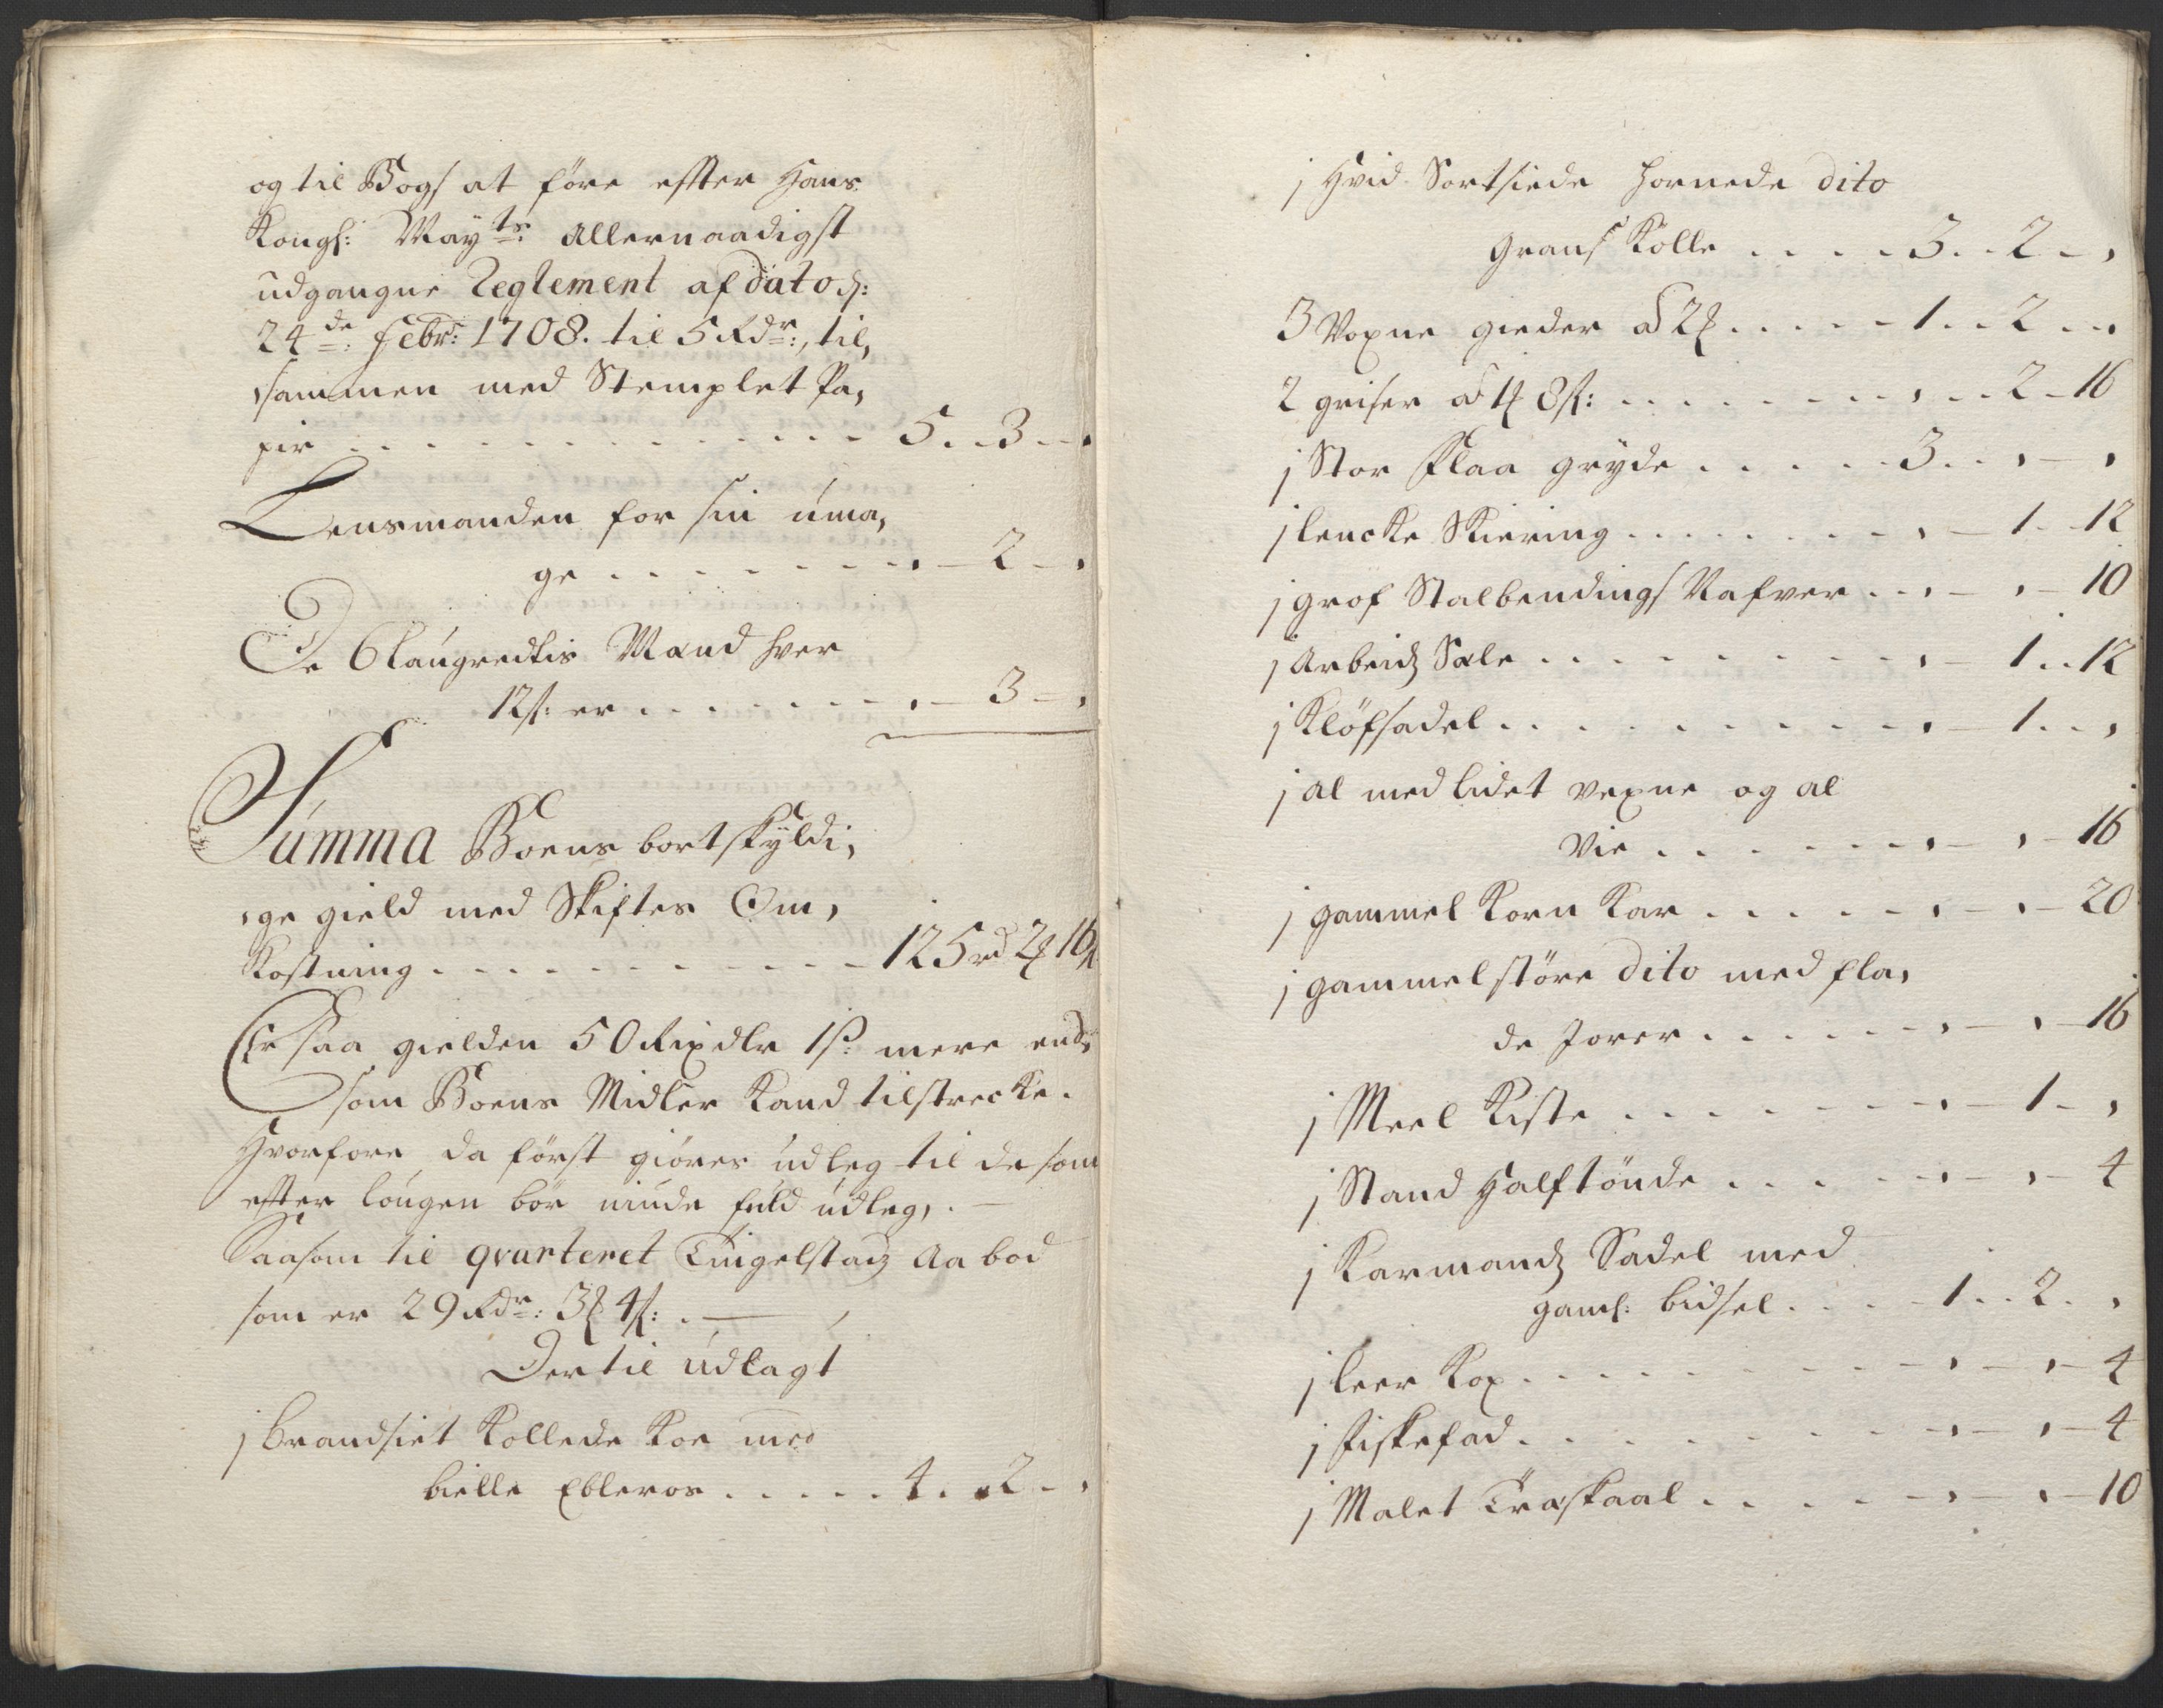 og til Bogs at føre effter Hans
Kongl: Mayts: Allernaadigst
udgangne Reglement af dato d:
24de: Febr: 1708. til 5 Rdr:, til,
sammen med Stemplet Pa,
pir . . . . . . . . . . . . . 5 . . 3 - ,
Lensmanden for sin uma,
ge . . . . . . . , - 2 - ,
De 6 laugrettis Mænd hver
12 s: er . . . . . . . , - 3 - ,
Summa Boens bortskyldi,
,ge gield med Skiftes Om,
Kostning . . . . . . . . . . . - 125 rd 2 ₰ 16 s
Er saa gielden 50 Rixdlr 1 s: mere end,
som Boens Midler Kand tilstrecke.
Hvorfore da først giøres udleg til de som
effter lougen bør niude fuld udleg, . —
Saasom til qvarteret Tingelstad Aabod
som er 29 Rdr: 3 ₰ 4 s: . —
Dertil udlagt
1 brandsiet Kollede Koe med
bielle Ebleros . . . . . 4 . . 2 - ,
1 Hvid Sortsiede hornede dito
Graus Kolle . . . . 3 . . 2 - ,
3 Voxne gieder à 2 ₰ . . . . . 1 . . 2 . .
2 griser à 1 ₰ 8 s: . . . . . . . , . . 2 - 16
1 Stor Flaa gryde . . . . . 3 . . , - ,
1 lencke Skiering . . . . . . . , - 1 . . 12
1 grof Stalbendings Nafver . . , - , - 10
1 Arbeids Sæle . . . . . . . . , - 1 . . 12
1 Kløfsadel . . . . . . . . . , - 1 . . ,
1 al med lidet vexne og al
Vie . . . . . . . , - , - 16
1 gammel Korn Kar . . . . . , - , - 20
1 gammel støre dito med fla,
de Jorer . . . . . . , - , - 16
1 Meel Kiste . . . . . . . , - 1 - ,
1 Stand Halftønde . . . . . , - , - 4
1 Karmands Sadel med
gaml: bidsel . . . . 1 . . 2 . ,
1 leer Kop . . . . . . . . , - , - 4
1 fiskefad . . . . . . . . . , - , - 4
1 Malet Træskaal . . . . . , - , - 10